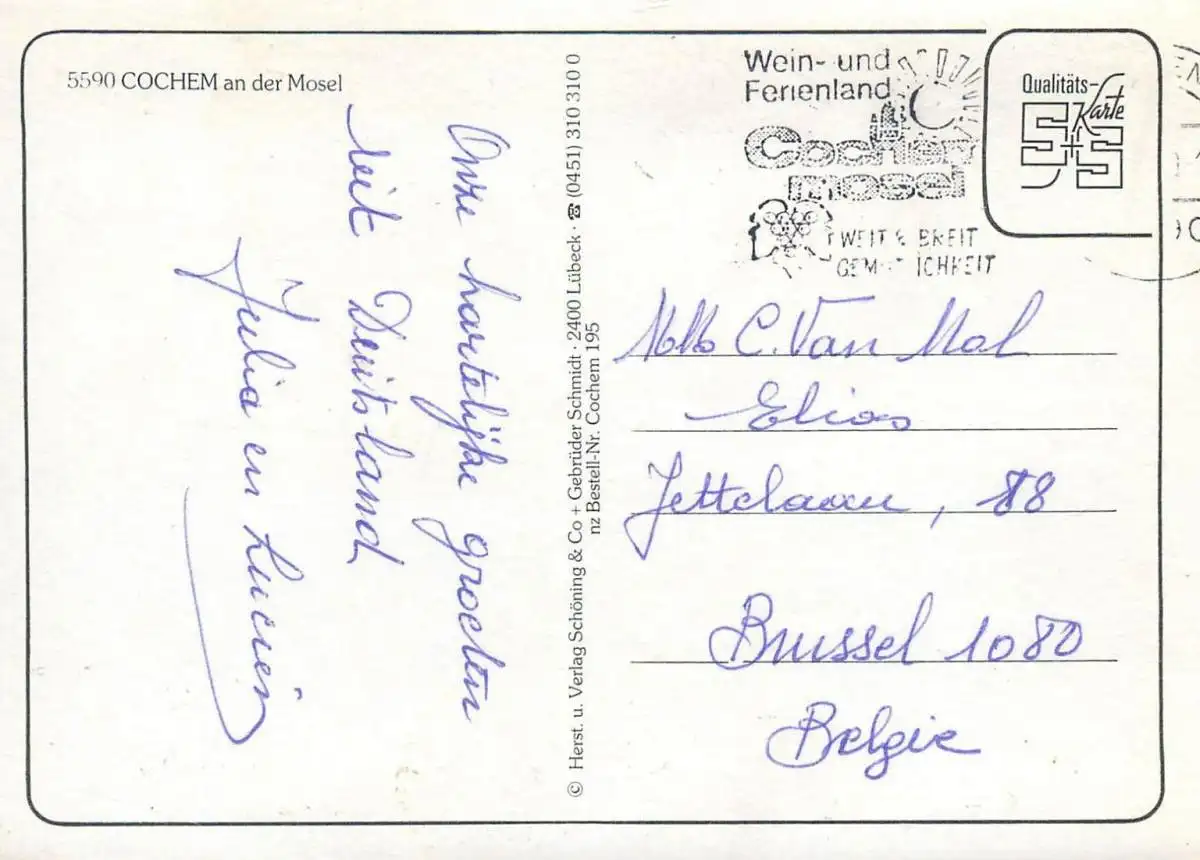 5590 COCHEM an der Mosel
Onze hartelijke groeten
uit Duitsland
Julia en Lucien
© Herst. u. Verlag Schöning & Co + Gebrüder Schmidt · 2400 Lübeck · ☎ (0451) 310 310 0
nz Bestell-Nr. Cochem 195
Wein- und
Ferienland
Cochem
mosel
WEIT & BREIT
GEM ICHKEIT
Qualitäts-
Karte
S+S
C. Van Mol
Elias
Jettelaan, 88
Brussel 1080
Belgie